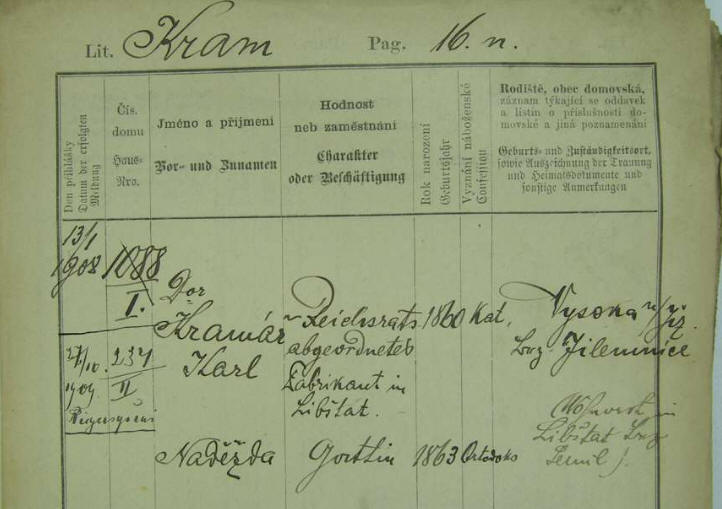 Lit. Kram Pag. 16. n.
Den přihlášky
Datum der erfolgten
Meldung
Čís.
domu
Haus-
Nro.
Jméno a příjmení
Vor- und Zunamen
Hodnost
neb zaměstnání
Charakter
oder Beschäftigung
Rok narození
Geburtsjahr
Vyznání náboženské
Confession
Rodiště, obec domovská,
záznam týkající se oddavek
a listin o příslušnosti do-
movské a jiná poznamenání
Geburts- und Zuständigkeitsort,
sowie Auszeichnung der Trauung
und Heimatsdokumente und
sonstige Anmerkungen
13/1
1908 1088
I.
Dor
Kramář
Karl
Reichsrats
abgeordneter
Fabrikant in
Libštat.
1860 Kat.
Vysoka n/Jiz.
Bez. Jilemnice
27/10. 237
1909 II
Riegrovo
Wohnort in
Libštat Bez
Semil).
Naděžda Gattin 1863 Ortodoks